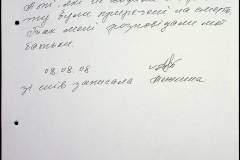 А ті, які не
ту були приречені на смерть.
Так мені розповідали мої
батьки.
08.08.08
зі слів записала